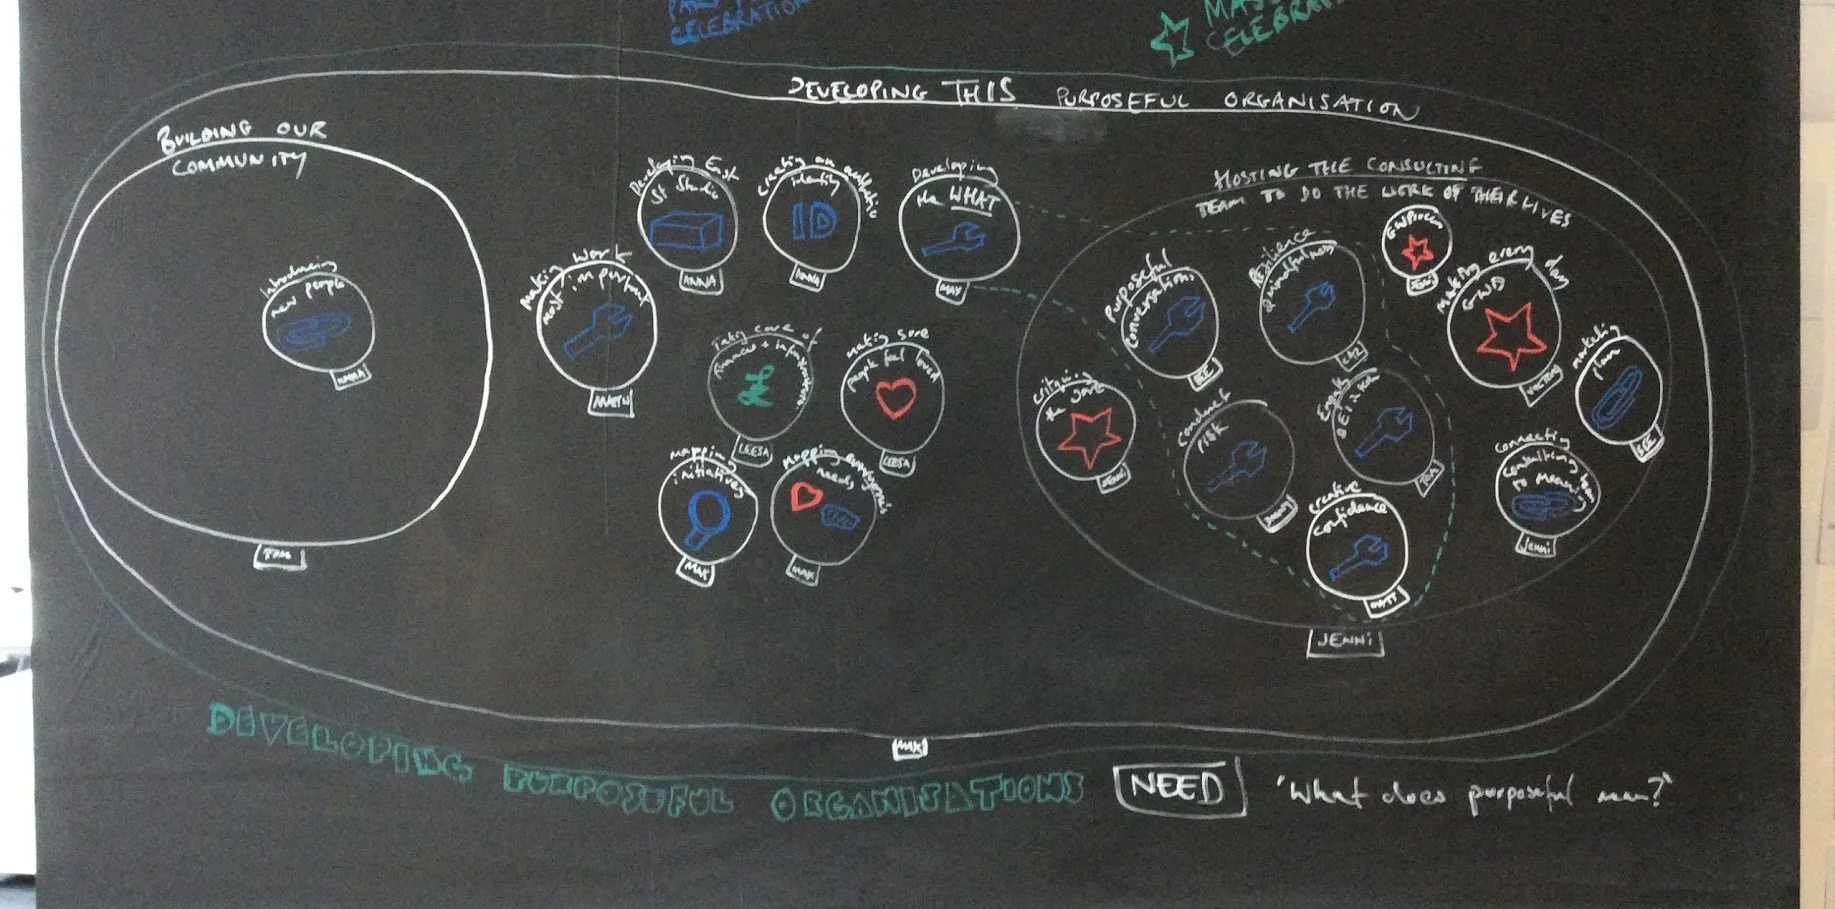 CELEBRATION
DEVELOPING THIS PURPOSEFUL ORGANISATION
BUILDING OUR
COMMUNITY
Introducing
new people
Making work
most important
MATT
Developing East
St Studio
ANNA
Creating an authentic
identity
ID
ANNA
Developing
the WHAT
MAX
Taking care of
finances + infrastructure.
£
LEESA
Making sure
people feel loved
LEESA
Mapping
initiatives
MAX
Mapping
needs
MAX
HOSTING THE CONSULTING
TEAM TO DO THE WORK OF THEIR LIVES
Purposeful
Conversations
BEE
Resilience
& mindfulness
JENNI
Making every day
GWD
Marketing
plan
BEE
Critiquing
the work
JENNI
Conduct
risk
TOM
Connecting
Consulting team
to Meaning
Jenni
Creative
confidence
MATT
JENNI
MAX
DEVELOPING PURPOSEFUL ORGANISATIONS
NEED
'What does purposeful mean?'